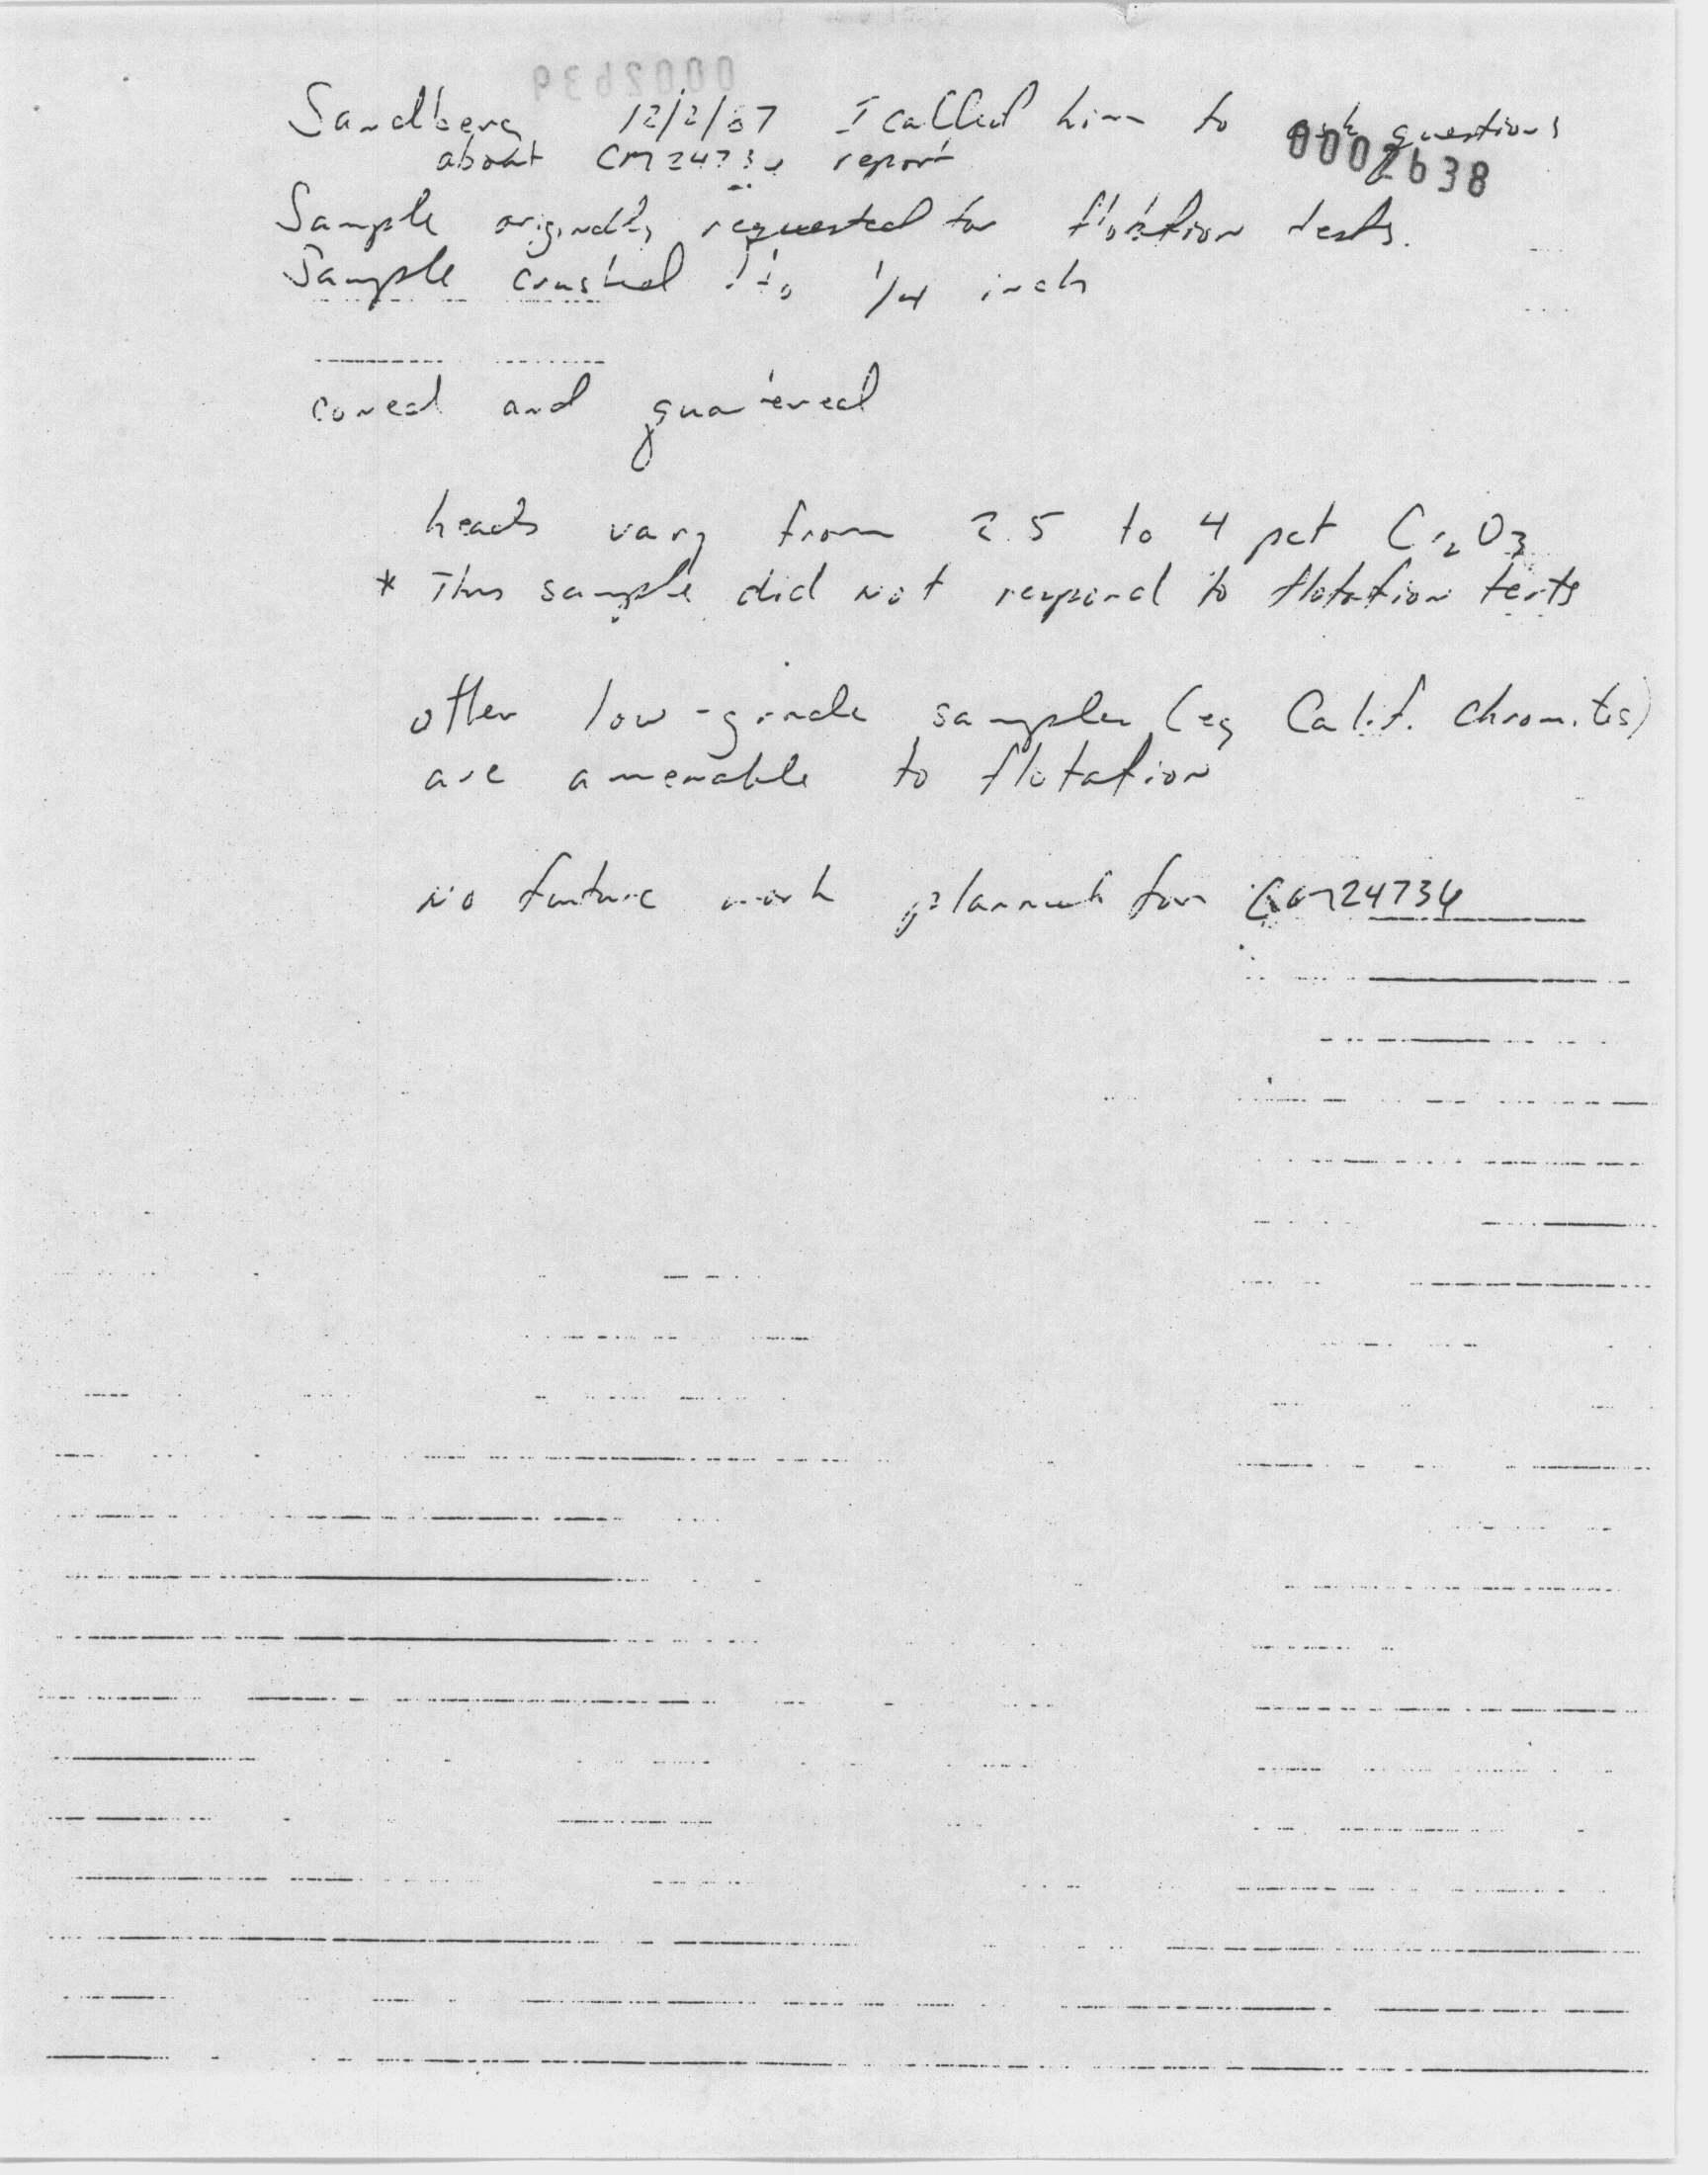 Sandberg 12/2/87 I called him to ask questions
0002638
about CM24736 report
Sample originally requested for flotation tests.
Sample crushed to 1/4 inch
coned and quartered
heads vary from 2.5 to 4 pct Cr2O3
* This sample did not respond to flotation tests
other low-grade samples (eg Calif. chromites)
are amenable to flotation
No future work planned for CM24736